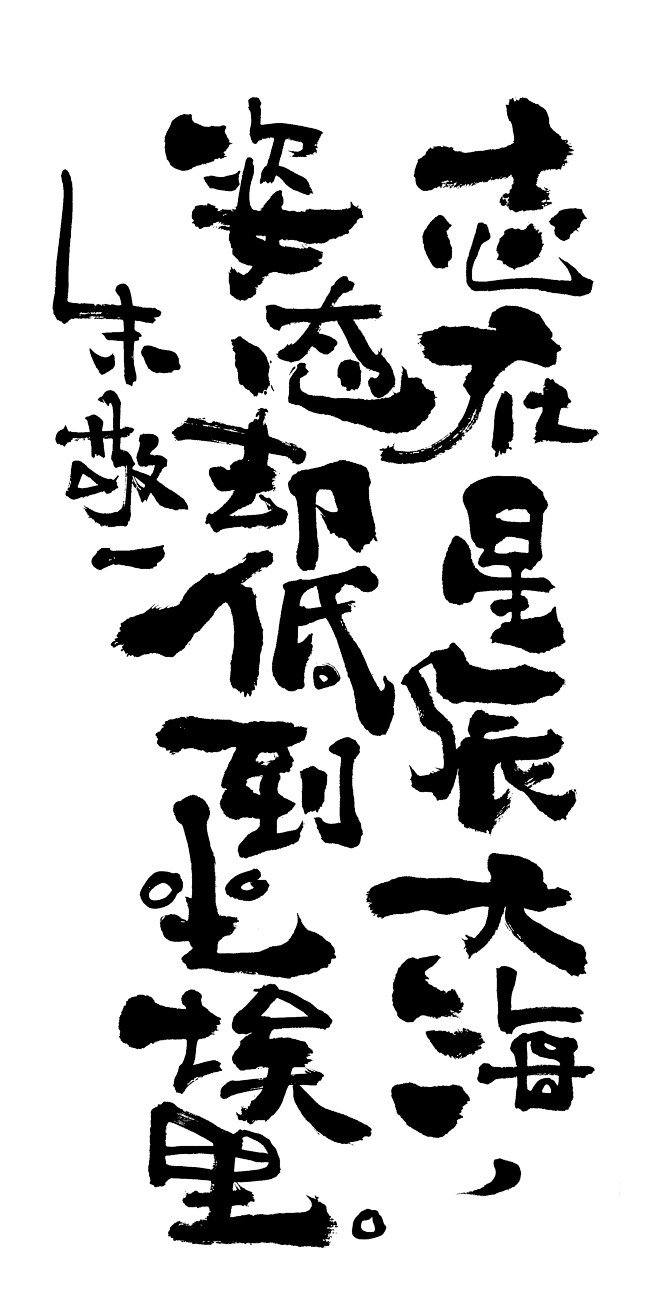 志在星辰大海，
姿态却低到尘埃里。
朱敬一